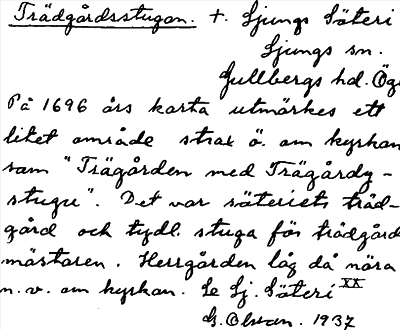 Trädgårdsstugan. †. Ljungs Säteri
Ljungs sn.
Gullbergs hd. Ög.
På 1696 års karta utmärkes ett
litet område strax ö. om kyrkan
som "Trägården med Trägårdz-
stugu". Det var säteriets träd-
gård och tydl. stuga för trädgård
mästaren. Herrgården låg då nära
n.v. om kyrkan. Se Lj. Säteri XX
G. Olsson. 1937